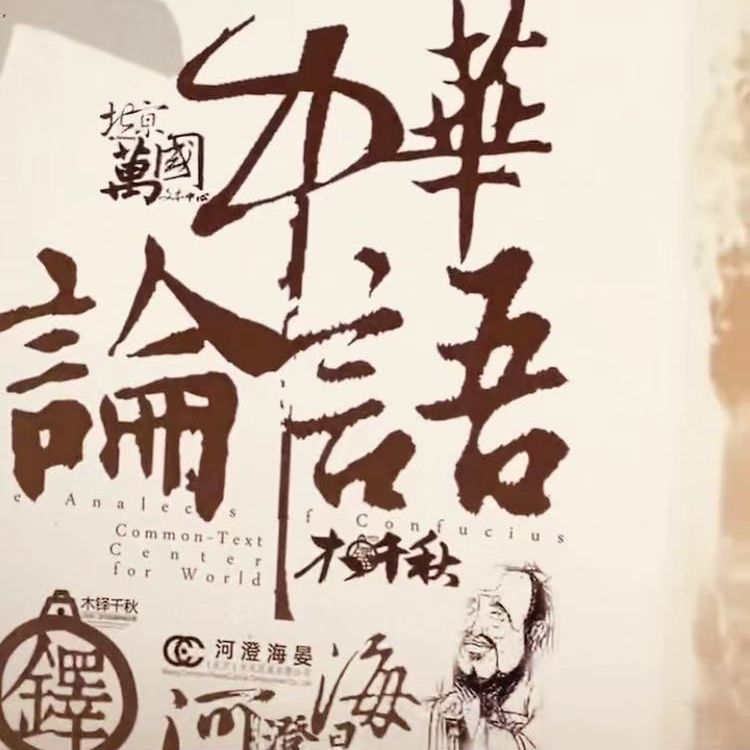 中華
北京
萬國
論語
e Analects of Confucius
Common-Text
Center
for World
木铎千秋
木铎千秋
鐸
河澄海晏
河澄海